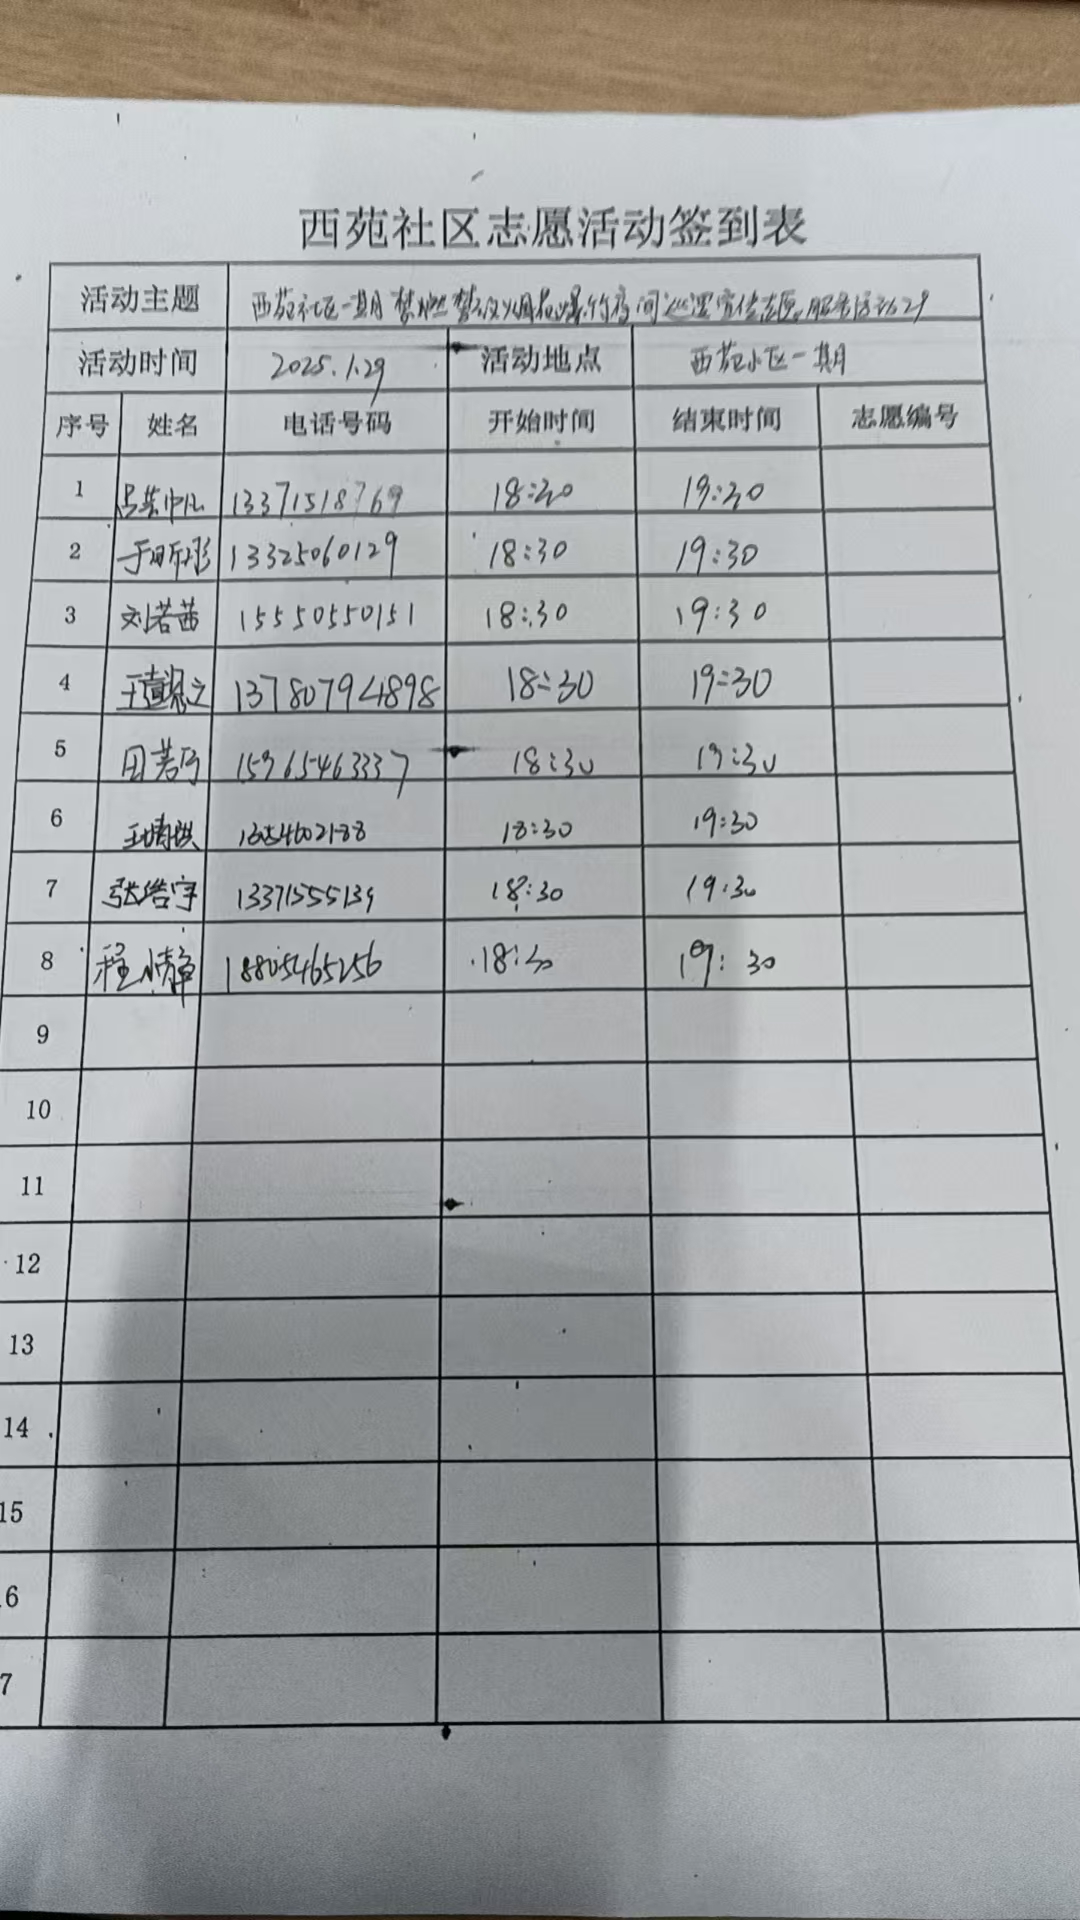 西苑社区志愿活动签到表
活动主题 西苑社区一期禁燃禁放烟花爆竹夜间巡逻宣传志愿服务活动29
活动时间 2025.1.29 活动地点 西苑小区一期
序号 姓名 电话号码 开始时间 结束时间 志愿编号
1 13371518769 18:30 19:30
2 于昕彤 13325060129 18:30 19:30
3 刘若茜 15550550151 18:30 19:30
4 13780794898 18:30 19:30
5 15965463337 18:30 19:30
6 18:30 19:30
7 张浩宇 13371555139 18:30 19:30
8 程小静 18805465256 18:30 19:30
9
10
11
12
13
14
15
6
7